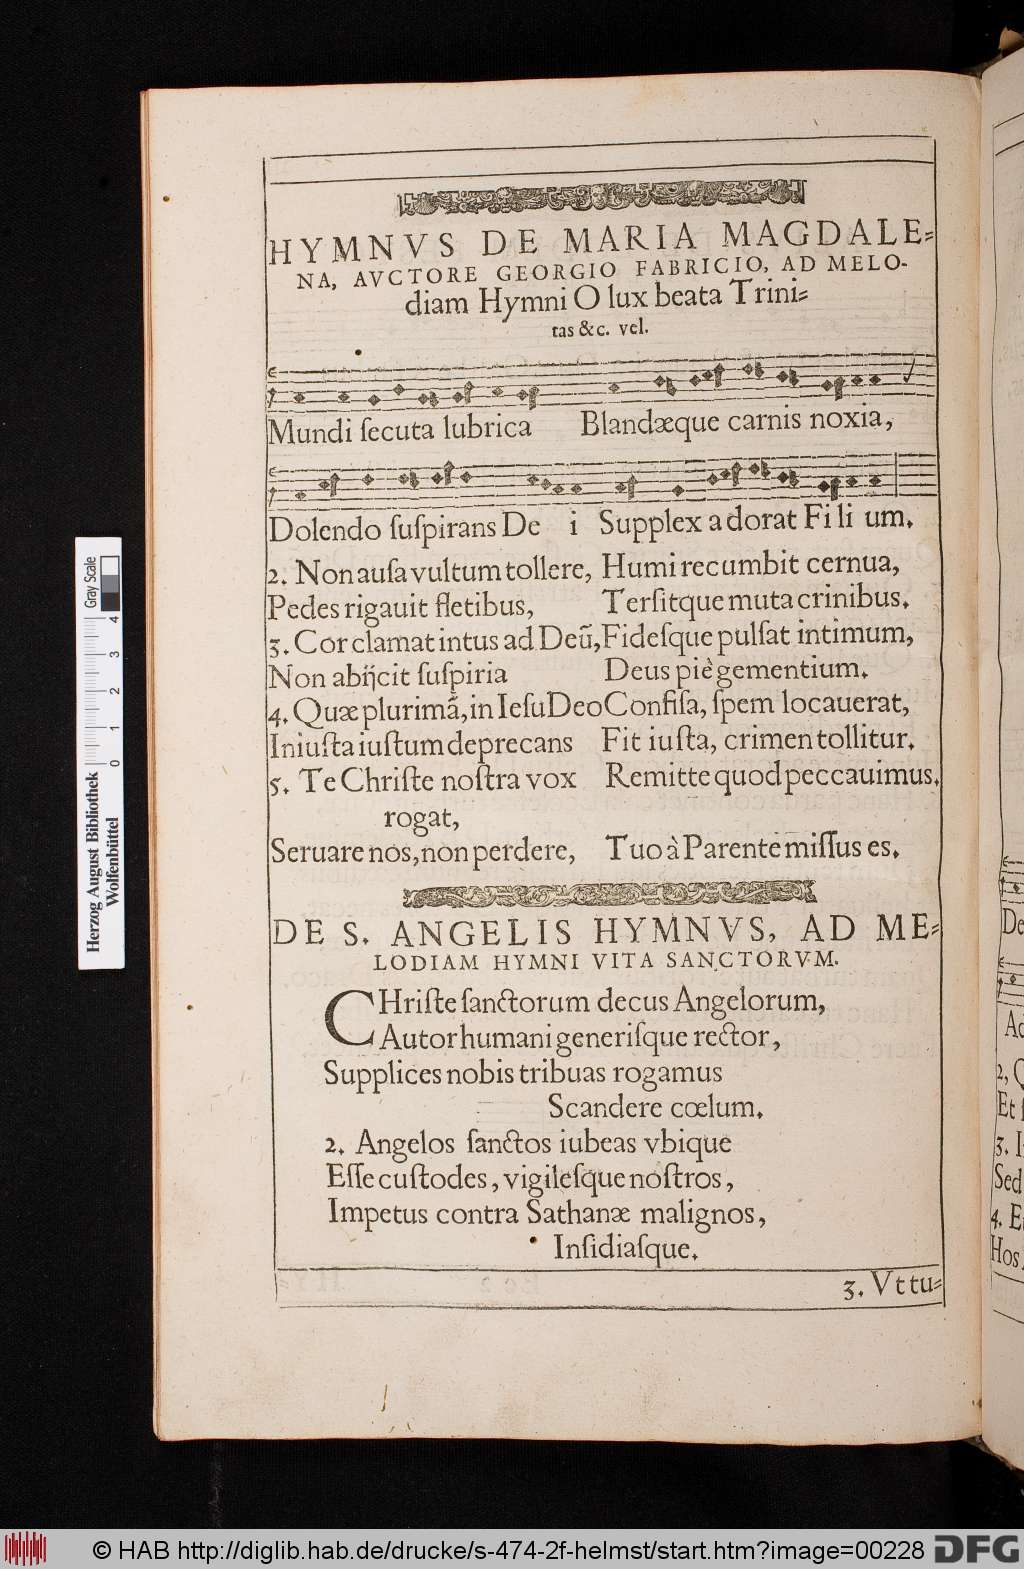 HYMNVS DE MARIA MAGDALE-
NA, AVCTORE GEORGIO FABRICIO, AD MELO-
diam Hymni O lux beata Trini-
tas &c. vel.
Mundi ſecuta lubrica Blandæque carnis noxia,
Dolendo ſuſpirans De i Supplex adorat Fi li um.
2. Non auſa vultum tollere, Humi recumbit cernua,
Pedes rigauit fletibus, Terſitque muta crinibus.
3. Cor clamat intus ad Deũ, Fideſque pulſat intimum,
Non abijcit ſuſpiria Deus piè gementium.
4. Quæ plurimã, in Ieſu Deo Confiſa, ſpem locauerat,
Iniuſta iuſtum deprecans Fit iuſta, crimen tollitur.
5. Te Chriſte noſtra vox Remitte quod peccauimus.
rogat,
Seruare nos, non perdere, Tuo à Parente miſſus es.
DE S. ANGELIS HYMNVS, AD ME-
LODIAM HYMNI VITA SANCTORVM.
CHriſte ſanctorum decus Angelorum,
Autor humani generiſque rector,
Supplices nobis tribuas rogamus
Scandere cœlum.
2. Angelos ſanctos iubeas vbique
Eſſe cuſtodes, vigileſque noſtros,
Impetus contra Sathanæ malignos,
Inſidiaſque.
3. Vt tu-
De
Ad
2, Q
Et ſ
3. I
Sed
4. Et
Hos
Herzog August Bibliothek
Wolfenbüttel
Gray Scale
0 1 2 3 4
© HAB http://diglib.hab.de/drucke/s-474-2f-helmst/start.htm?image=00228
DFG